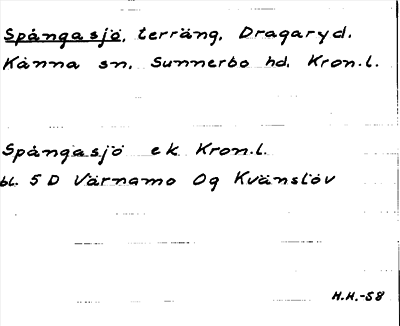 Spångasjö, terräng, Dragaryd.
Kånna sn, Sunnerbo hd, Kron.l.
Spångasjö ek Kron.l.
bl. 5 D Värnamo Og Kvänslöv
H.H.-58